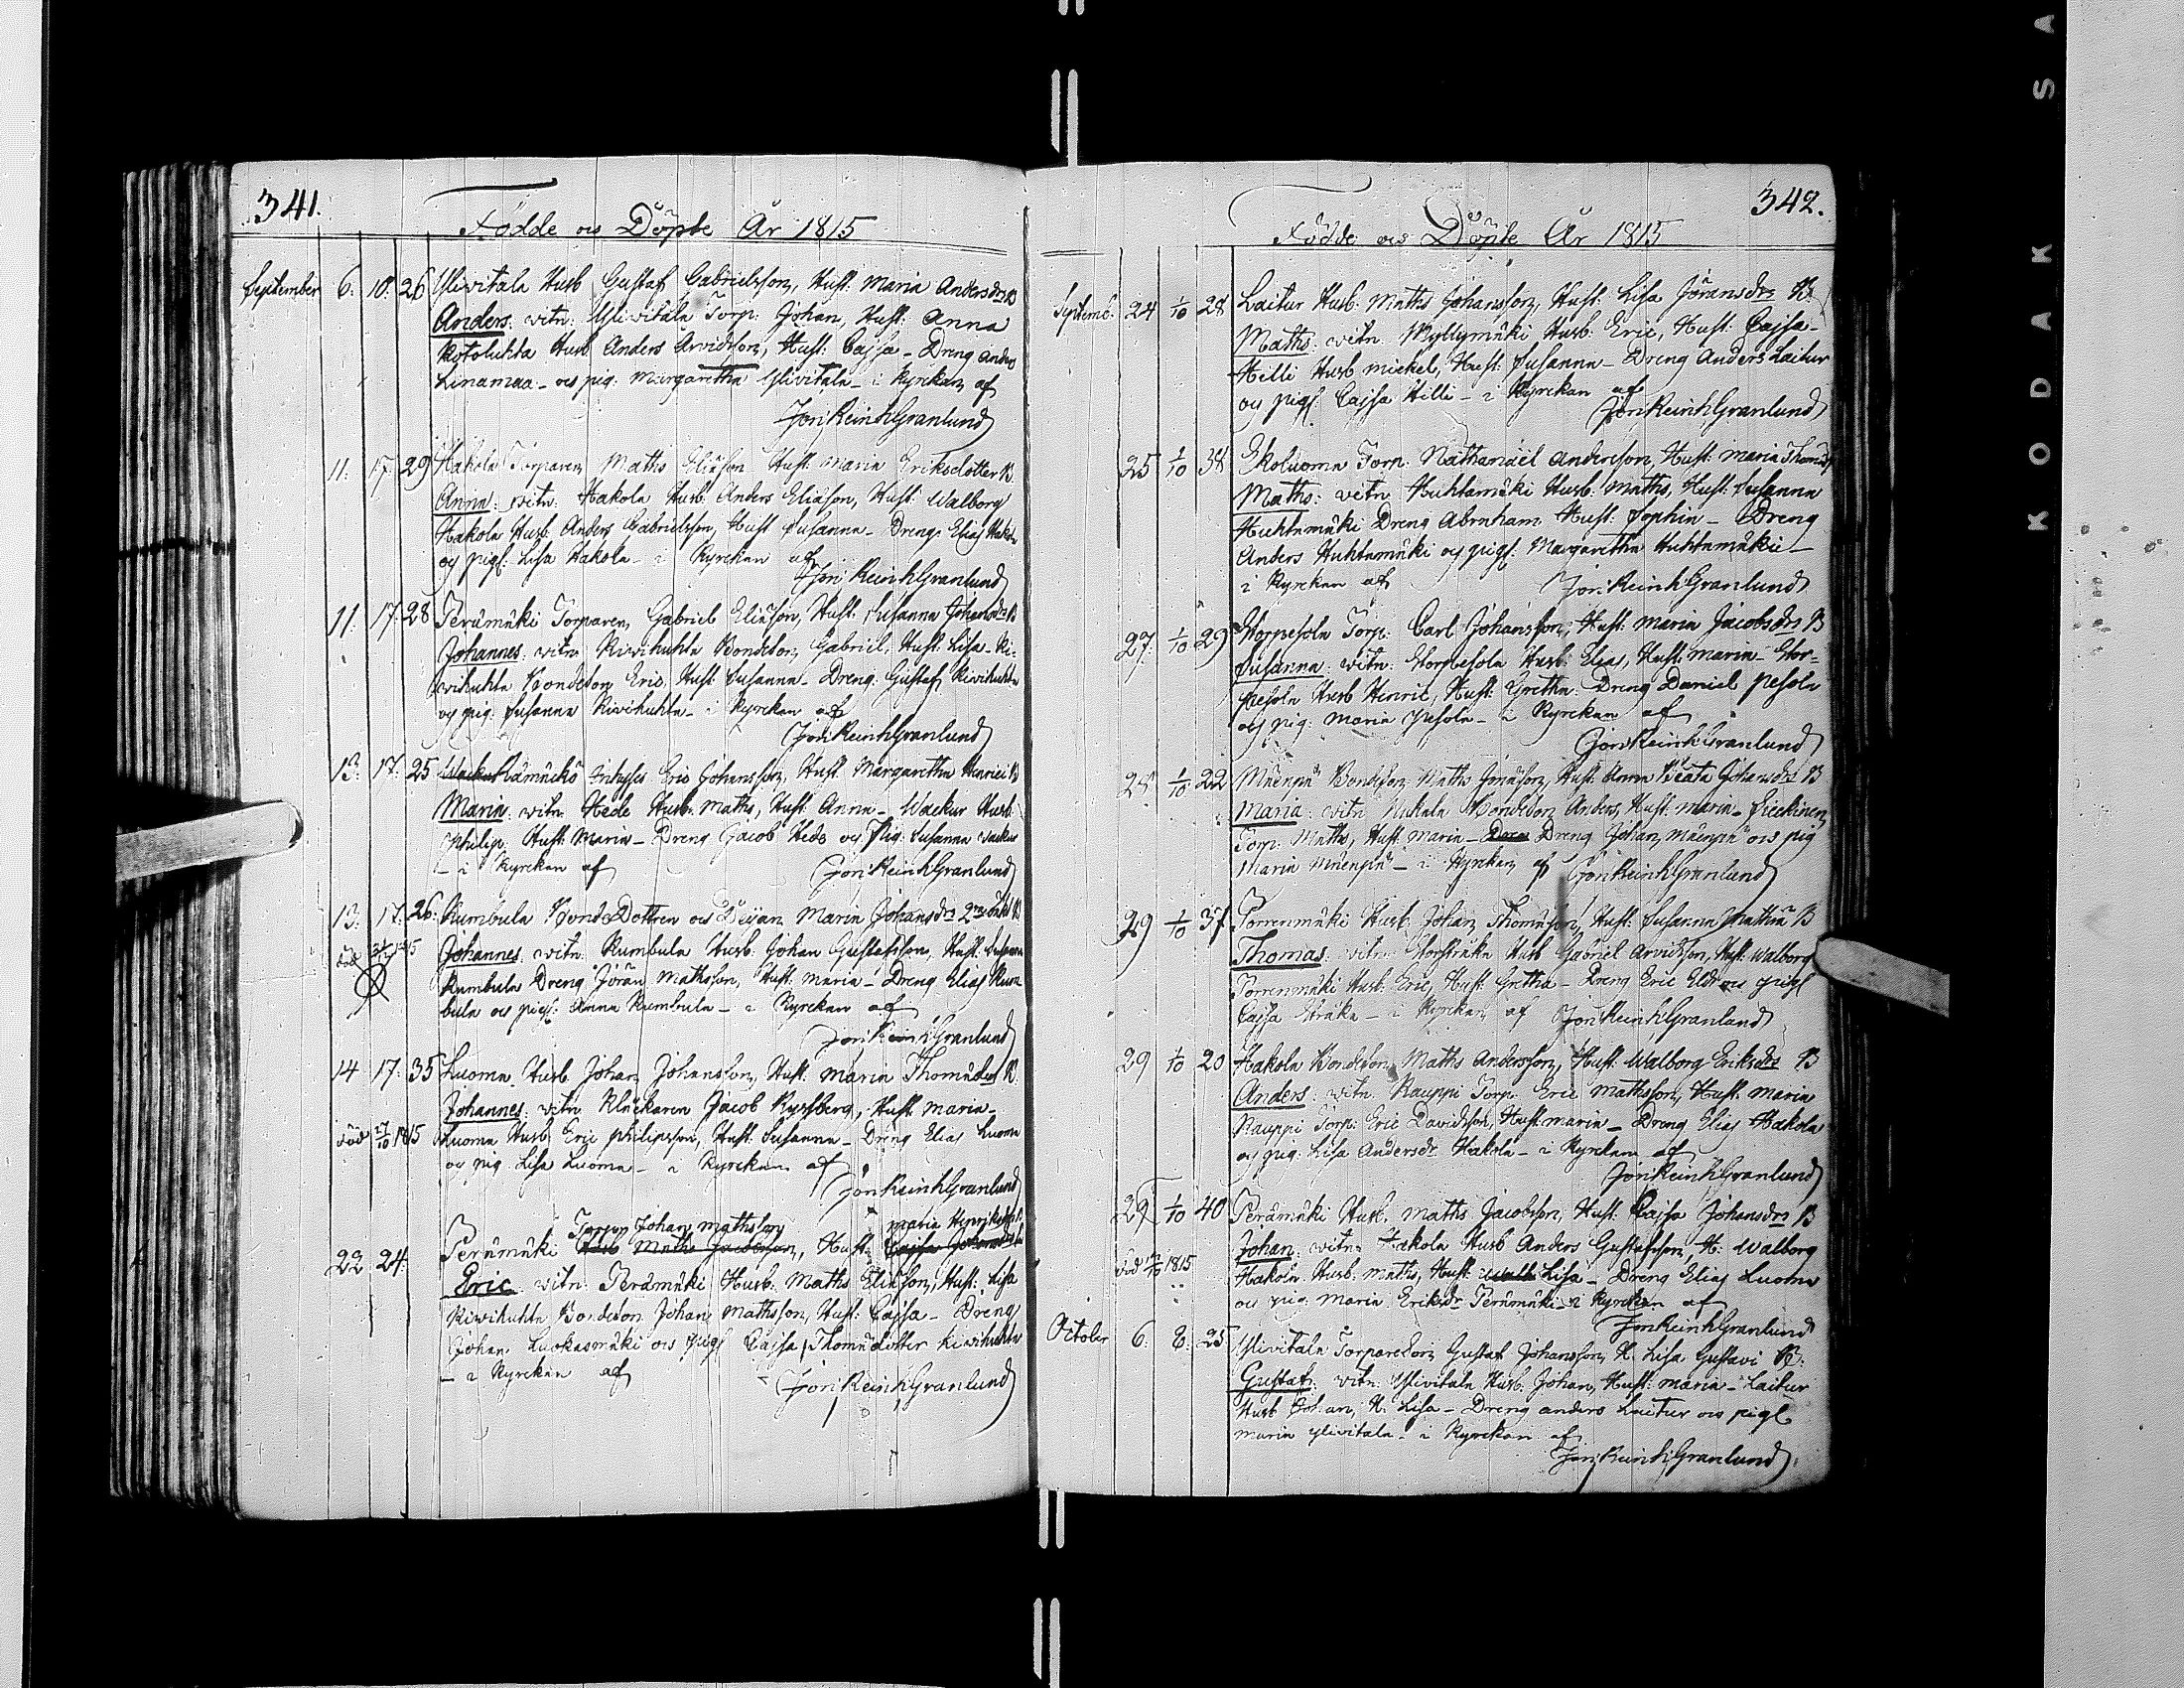 341.
Födde os Döpte År 1815
September 6. 10. 26 Ylivitala Husb Gustaf Gabrielsson, Hust. Maria Andersdr B
Anders: vitn: Ylivitala Torp: Johan, Hust: Anna
Kotoluhta Husb Anders Arvidsson, Hust: Cajsa - Dreng Anders
Linamaa - os pig: Margaretha Ylivitala - i Kyrckan af
Jon: Reinh Granlund
11. 17. 29 Hakola Torparen Maths Eliæson Hust: Maria Eriksdotter B.
Anna: vitn: Hakola Husb: Anders Eliæson, Hust: Walborg
Hakola Husb: Anders Gabrielsson, Hust Susanna - Dreng: Elias Hakola
os pigs: Lisa Hakola - i Kyrckan af
Jon: Reinh Granlund
11. 17. 28 Perämäki Torparen Gabriel Eliæson, Hust: Susanna Johansdr B
Johannes: vitn: Kivihuhta Bondeson Gabriel, Hust: Lisa - Ki-
vihuhta Bondeson Eric, Hust: Susanna - Dreng: Gustaf Kivihuhta
os pig: Susanna Kivihuhta - i Kyrckan af
Jon: Reinh Granlund
13. 17. 25 Hämäckö Inhyses Eric Johansson, Hust. Margaretha Henrici B
Maria: vitn: Hede Husb: Maths, Hust. Anna - Wackur Husb:
Philip Hust: Maria - Dreng Jacob Hede os Pig: Susanna Wackur
- i Kyrckan af Jon: Reinh Granlund
13. 17. 26. Rumbula BondeDottren os Pigan Maria Johansdr B
död 1815 Johannes: vitn: Rumbula Husb: Johan Gustafsson, Hust: Susanna
Rumbula Dreng Jöran Mathsson, Hust: Maria - Dreng Elias Rum
bula os pigs: Anna Rumbula - i Kyrckan af
Jon: Reinh Granlund
14 17. 35 Luoma Husb Johan Johansson, Hust. Maria Thomædotr B.
Johannes: vitn: Klåckaren Jacob Rysberg, Hust. Maria -
död 27/10 1815 Luoma Husb Eric Philipsson, Hust: Susanna - Dreng Elias Luoma
os pig Lisa Luoma - i Kyrckan af
Jon: Reinh Granlund
Torpn Johan Mathsson Maria Henriksdotr
22 24. Perämäki Husb Maths Jacobsson, Hust: Cajsa Johansdr
Eric: vitn: Perämäki Husb: Maths Eliæson, Hust: Lisa
Kivihuhta Bondeson Johan Mathsson, Hust: Cajsa - Dreng
Johan Luokasmäki os Pigs Cajsa Thomædotter Kivihuhta
- i Kyrckan af Jon: Reinh Granlund
342.
Födde os Döpte År 1815
Septemb. 24 1/10 28 Laitur Husb. Maths Johansson, Hust: Lisa Jöransdr B.
Maths: vitn: Myllymäki Husb: Eric, Hust: Cajsa -
Hilli Husb Mickel, Hust: Susanna - Dreng Anders Laitur
os pigs: Cajsa Hilli - i Kyrckan af Jon: Reinh Granlund
25 1/10 34 Ekoluoma Torp: Nathanaël Andersson, Hust: Maria Thomædr
Maths: vitn: Huhtamäki Husb: Maths, Hust: Susanna
Huhtamäki Dreng Abraham Hust: Sophia - Dreng
Anders Huhtamäki os pigs: Margaretha Huhtamäki -
i Kyrckan af Jon: Reinh Granlund
27. 1/10 29 Storpesola Torp: Carl Johansson, Hust: Maria Jacobsdr B
Susanna: vitn: Storpesola Husb: Elias, Hust: Maria - Stor=
pesola Husb Henric, Hust: Gretha: Dreng Daniel Pesola
os pig: Maria Pesola - i Kyrckan af
Jon: Reinh Granlund
28 1/10 22 Mäenpä Bondeson Maths Hust Anna Beata Johansdr B
Maria: vitn: Bondeson Anders, Hust: Maria -
Torp: Maths, Hust: Maria - Dreng Johan Mäenpä os pig
Maria Mäenpä - i Kyrckan af Jon: Reinh Granlund
29 1/10 37 Porrenmäki Husb: Johan Thomæson, Hust: Susanna Mathiæ B
Thomas: vitn: Storstråka Husb Gabriel Arvidsson, Hust: Walborg
Porrenmäki Husb: Eric, Hust: Gretha - Dreng Eric os pigs
Cajsa Stråka - i Kyrckan af Jon: Reinh Granlund
29 1/10 20 Hakola Bondeson Maths Andersson, Hust: Walborg Eriksdr B
Anders: vitn: Rauppi Torp: Eric Mathsson, Hust: Maria
Rauppi Torp: Eric Davidsson, Hust: Maria - Dreng Elias Hakola
os pig: Lisa Andersdr Hakola - i Kyrckan af
Jon: Reinh Granlund
29 1/10 40 Perämäki Husb. Maths Jacobsson, Hust: Cajsa Johansdr B
Johan: vitn: Hakola Husb Anders Gustafsson, H: Walborg
död 1815 Hakola Husb: Maths, Hust: Lisa - Dreng Elias Luoma
os pig: Maria Eriksdr Perämäki - i Kyrckan af
Jon: Reinh Granlund
October 6. 8. 25 Ylivitala Torpareson Gustaf Johansson, H. Lisa Gustavi B.
Gustaf: vitn: Ylivitala Husb: Johan, Hust: Maria - Laitur
Husb Johan, H: Lisa - Dreng Anders Laitur os pigs
Maria Ylivitala - i Kyrckan af
Jon: Reinh Granlund
KODAK SA